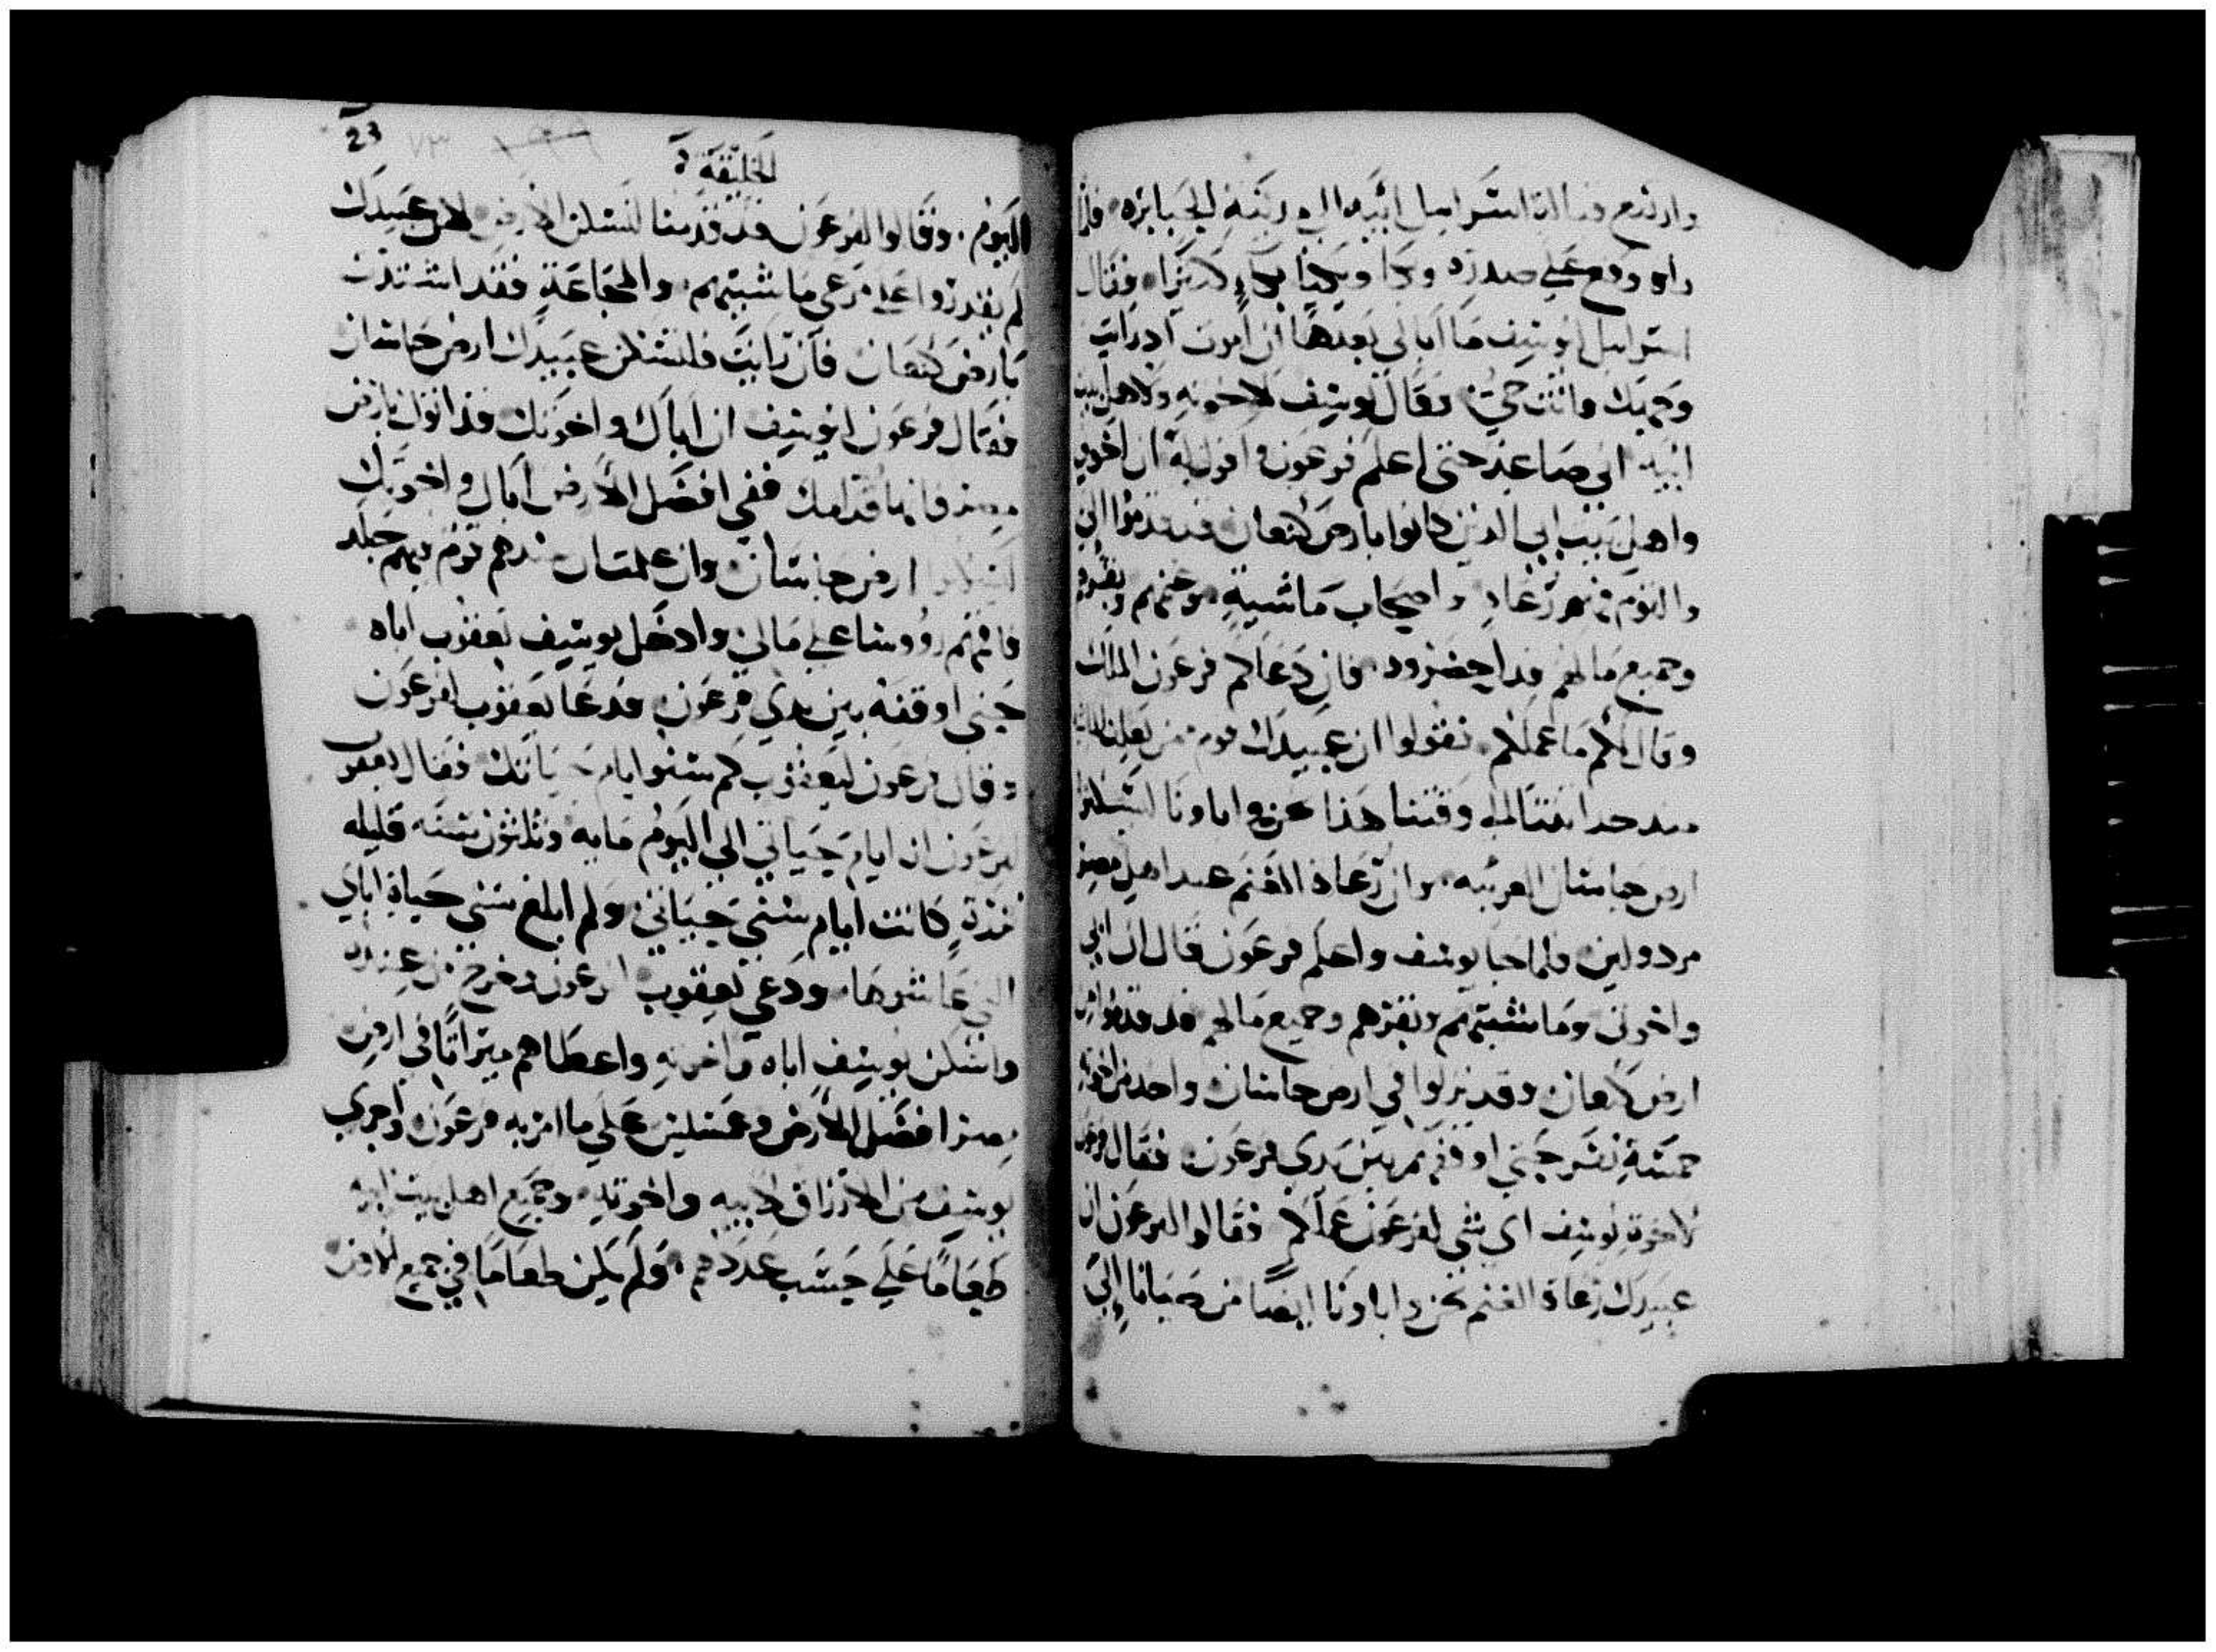 وارتفع فتالقا اسراييل ابيه الي ربته الجبابره فلما
راه وقع علي صدره وبكا ويكيا بكاءٍ كثيرا فقال
اسراييل ليوسف ما ابالي بعدها ان اموت اذ رايت
وجهك وانت حيٌ وقال يوسف لاخوته ولاهل بيت
ابيه اني صاعد حتى اعلم فرعون واقول له ان اخوتي
واهل بيت ابي الذين كانوا بارض كنعان قد قدموا الي
والقوم فهم رعاه واصحاب ماشيه وغنمهم وبقرهم
وجميع مالهم قد احضروه فان دعاكم فرعون الملك
وقال لكم ما عملكم تقولوا ان عبيدك قوم من
منذ حداثتنا الي وقتنا هذا نحن واباونا لتسكنوا
ارض جاسان العربيه وان رعاة الغنم عند اهل مصر
مردولين فلما جا يوسف واعلم فرعون قال ان ابي
واخوتي وماشيتهم وبقرهم وجميع مالهم قد قدموا من
ارض كنعان وقد نزلوا في ارض جاسان واخذ من اخوته
خمسة نفر حتى اوقفهم بين يدي فرعون فقال فرعون
لاخوة يوسف اى شي لفرعون عملكم فقالوا لفرعون ان
عبيدك رعاة الغنم نحن واباونا ايضا من صبانا الي
23
الخليقة
اليوم وقالوا لفرعون قد قدمنا لنسكن الارض لان عبيدك
لم يقدروا على مرعى ماشيتهم والمجاعة فقد اشتدت
بارض كنعان فان رايت فلتسكن عبيدك ارض جاسان
فقال فرعون ليوسف ان اباك واخوتك قد اتوك بارض
مصر فانها قدامك ففي افضل الارض اباك واخوتك
ليسكنوا ارض جاسان وان علمت ان فيهم قوم بهم جلد
فاقمهم رووسا علي مالي وادخل يوسف يعقوب اباه
حتى اوقفه بين يدي فرعون فدعا يعقوب لفرعون
وقال فرعون ليعقوب كم سنوا ايام حياتك فقال يعقوب
لفرعون ان ايام حياتي الى اليوم مايه وثلثون سنه قليله
نزرة كانت ايام سني حياتي ولم ابلغ سني حياة اباي
التي عاشوها ودعي يعقوب لفرعون وخرج من عنده
واسكن يوسف اباه واخوته واعطاهم ميراثا في ارض
مصر افضل الارض وعسليس على ما امر به فرعون واجري
يوسف من الارزاق لابيه واخوته وجميع اهل بيت ابيه
طعاما على حسب عددهم ولم يكن طعاما في جميع الارض